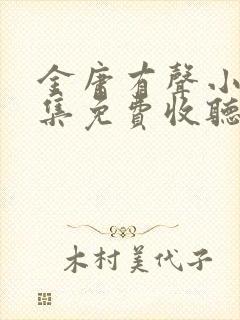 金庸有聲小
集免費收聽
木村美代子